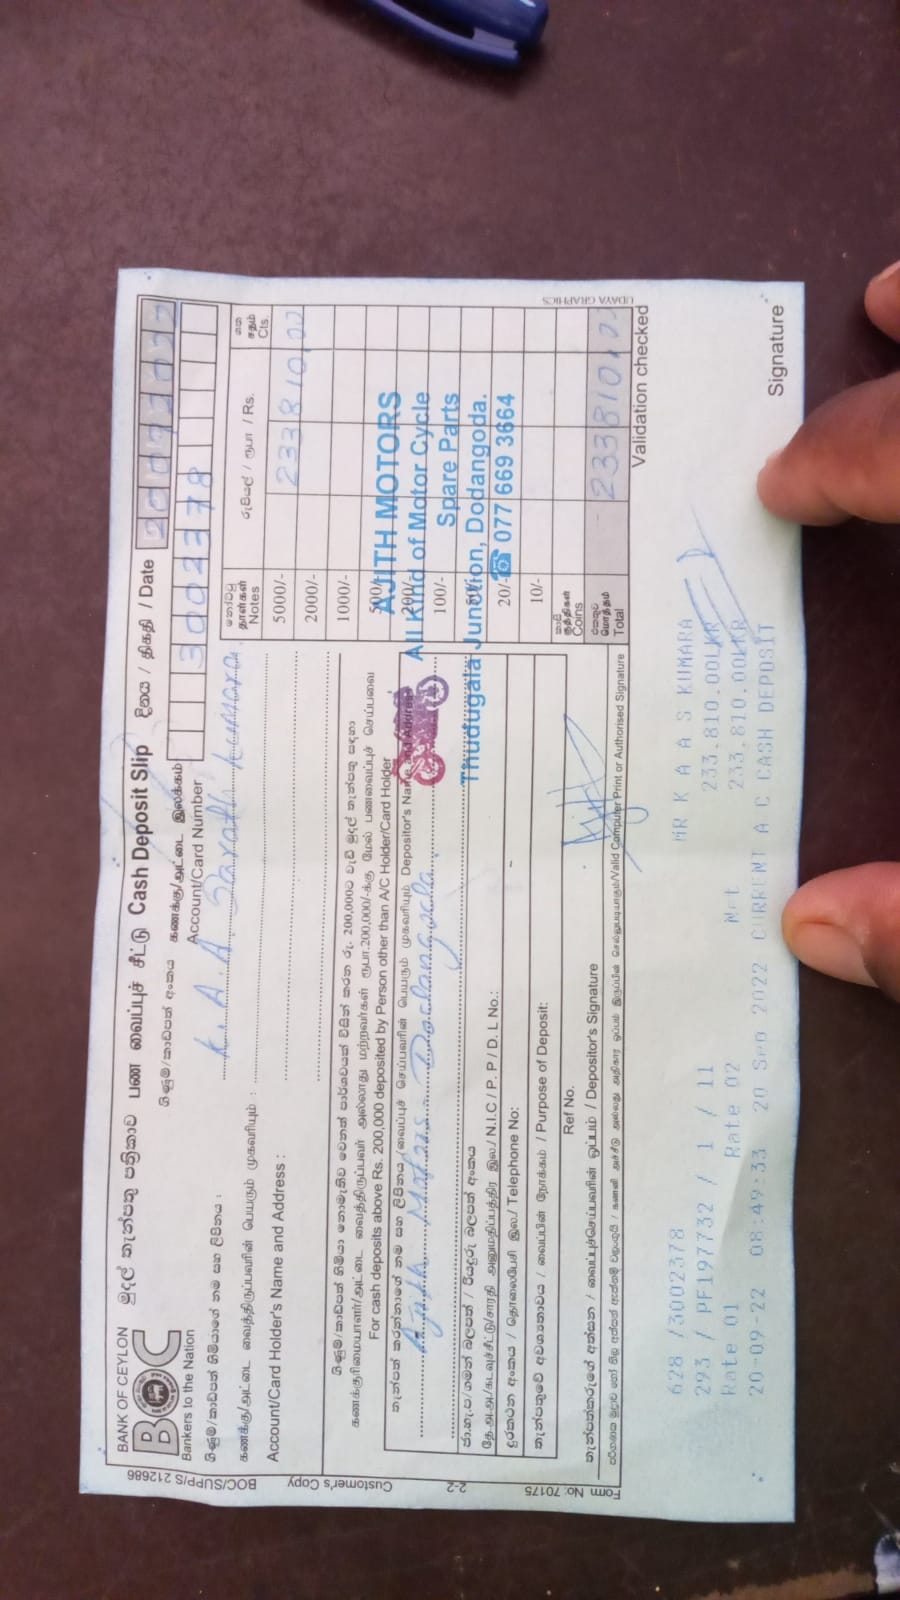 BANK OF CEYLON
BOC
Bankers to the Nation
මුදල් තැන්පතු පත්‍රිකාව பண வைப்புச் சீட்டு Cash Deposit Slip
දිනය / திகதி / Date 20 09 2022
ගිණුම්/කාඩ්පත් අංකය
கணக்கு/அட்டை இலக்கம்
Account/Card Number
3002378
ගිණුම්/කාඩ්පත් හිමියාගේ නම සහ ලිපිනය :
கணக்கு/அட்டை வைத்திருப்பவரின் பெயரும் முகவரியும் :
Account/Card Holder's Name and Address :
K. A. A Sarath Kumara
නෝට්ටු
தாள்கள்
Notes
රුපියල් / ரூபா / Rs.
ශත
சதம்
Cts.
5000/- 233810.00
2000/-
1000/-
500/-
200/-
100/-
20/-
10/-
කාසි
குத்திகள்
Coins
එකතුව
மொத்தம்
Total
233810.00
ගිණුම්/කාඩ්පත් හිමියා නොමැතිව වෙනත් පාර්ශවයක් විසින් කරන රු. 200,000ට වැඩි මුදල් තැන්පතු සඳහා
கணக்குரிமையாளர்/அட்டை வைத்திருப்பவர் அல்லாது மற்றவர்கள் ரூபா.200,000/-க்கு மேல் பணவைப்புச் செய்பவை
For cash deposits above Rs. 200,000 deposited by Person other than A/C Holder/Card Holder
තැන්පත් කරන්නාගේ නම සහ ලිපිනය/வைப்புச் செய்பவரின் பெயரும் முகவரியும் Depositor's Name and Address
Ajith Motors Dodangoda
ජා.හැ.ප/ගමන් බලපත් / රියදුරු බලපත් අංකය
தே.அ.அ/கடவுச்சீட்டு/சாரதி அனுமதிப்பத்திர இல./ N.I.C / P. P / D. L No.:
දුරකථන අංකය / தொலைபேசி இல./ Telephone No:
තැන්පතුවේ අවශ්‍යතාවය / வைப்பின் நோக்கம் / Purpose of Deposit:
Ref No.
තැන්පත්කරුගේ අත්සන / வைப்புச்செய்பவரின் ஒப்பம் / Depositor's Signature
/Valid Computer Print or Authorised Signature
AJITH MOTORS
All Kind of Motor Cycle
Spare Parts
Thudugala Junction, Dodangoda.
☎ 077 669 3664
BOC/SUPP/S 212686
Customer's Copy
2-2
Form No: 70175
UDAYA GRAPHICS
Validation checked
628 /3002378 MR K A A S KUMARA
293 / PF197732 / 1 / 11 233,810.00LKR
Rate 01 Rate 02 Net 233,810.00LKR
20-09-22 08:49:33 20 Sep 2022 CURRENT A C CASH DEPOSIT
Signature